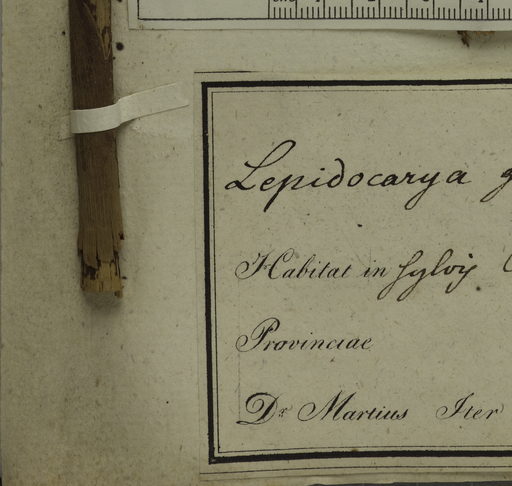 Lepidocarya g
Habitat in sylvis
Provinciae
Dr Martius Iter